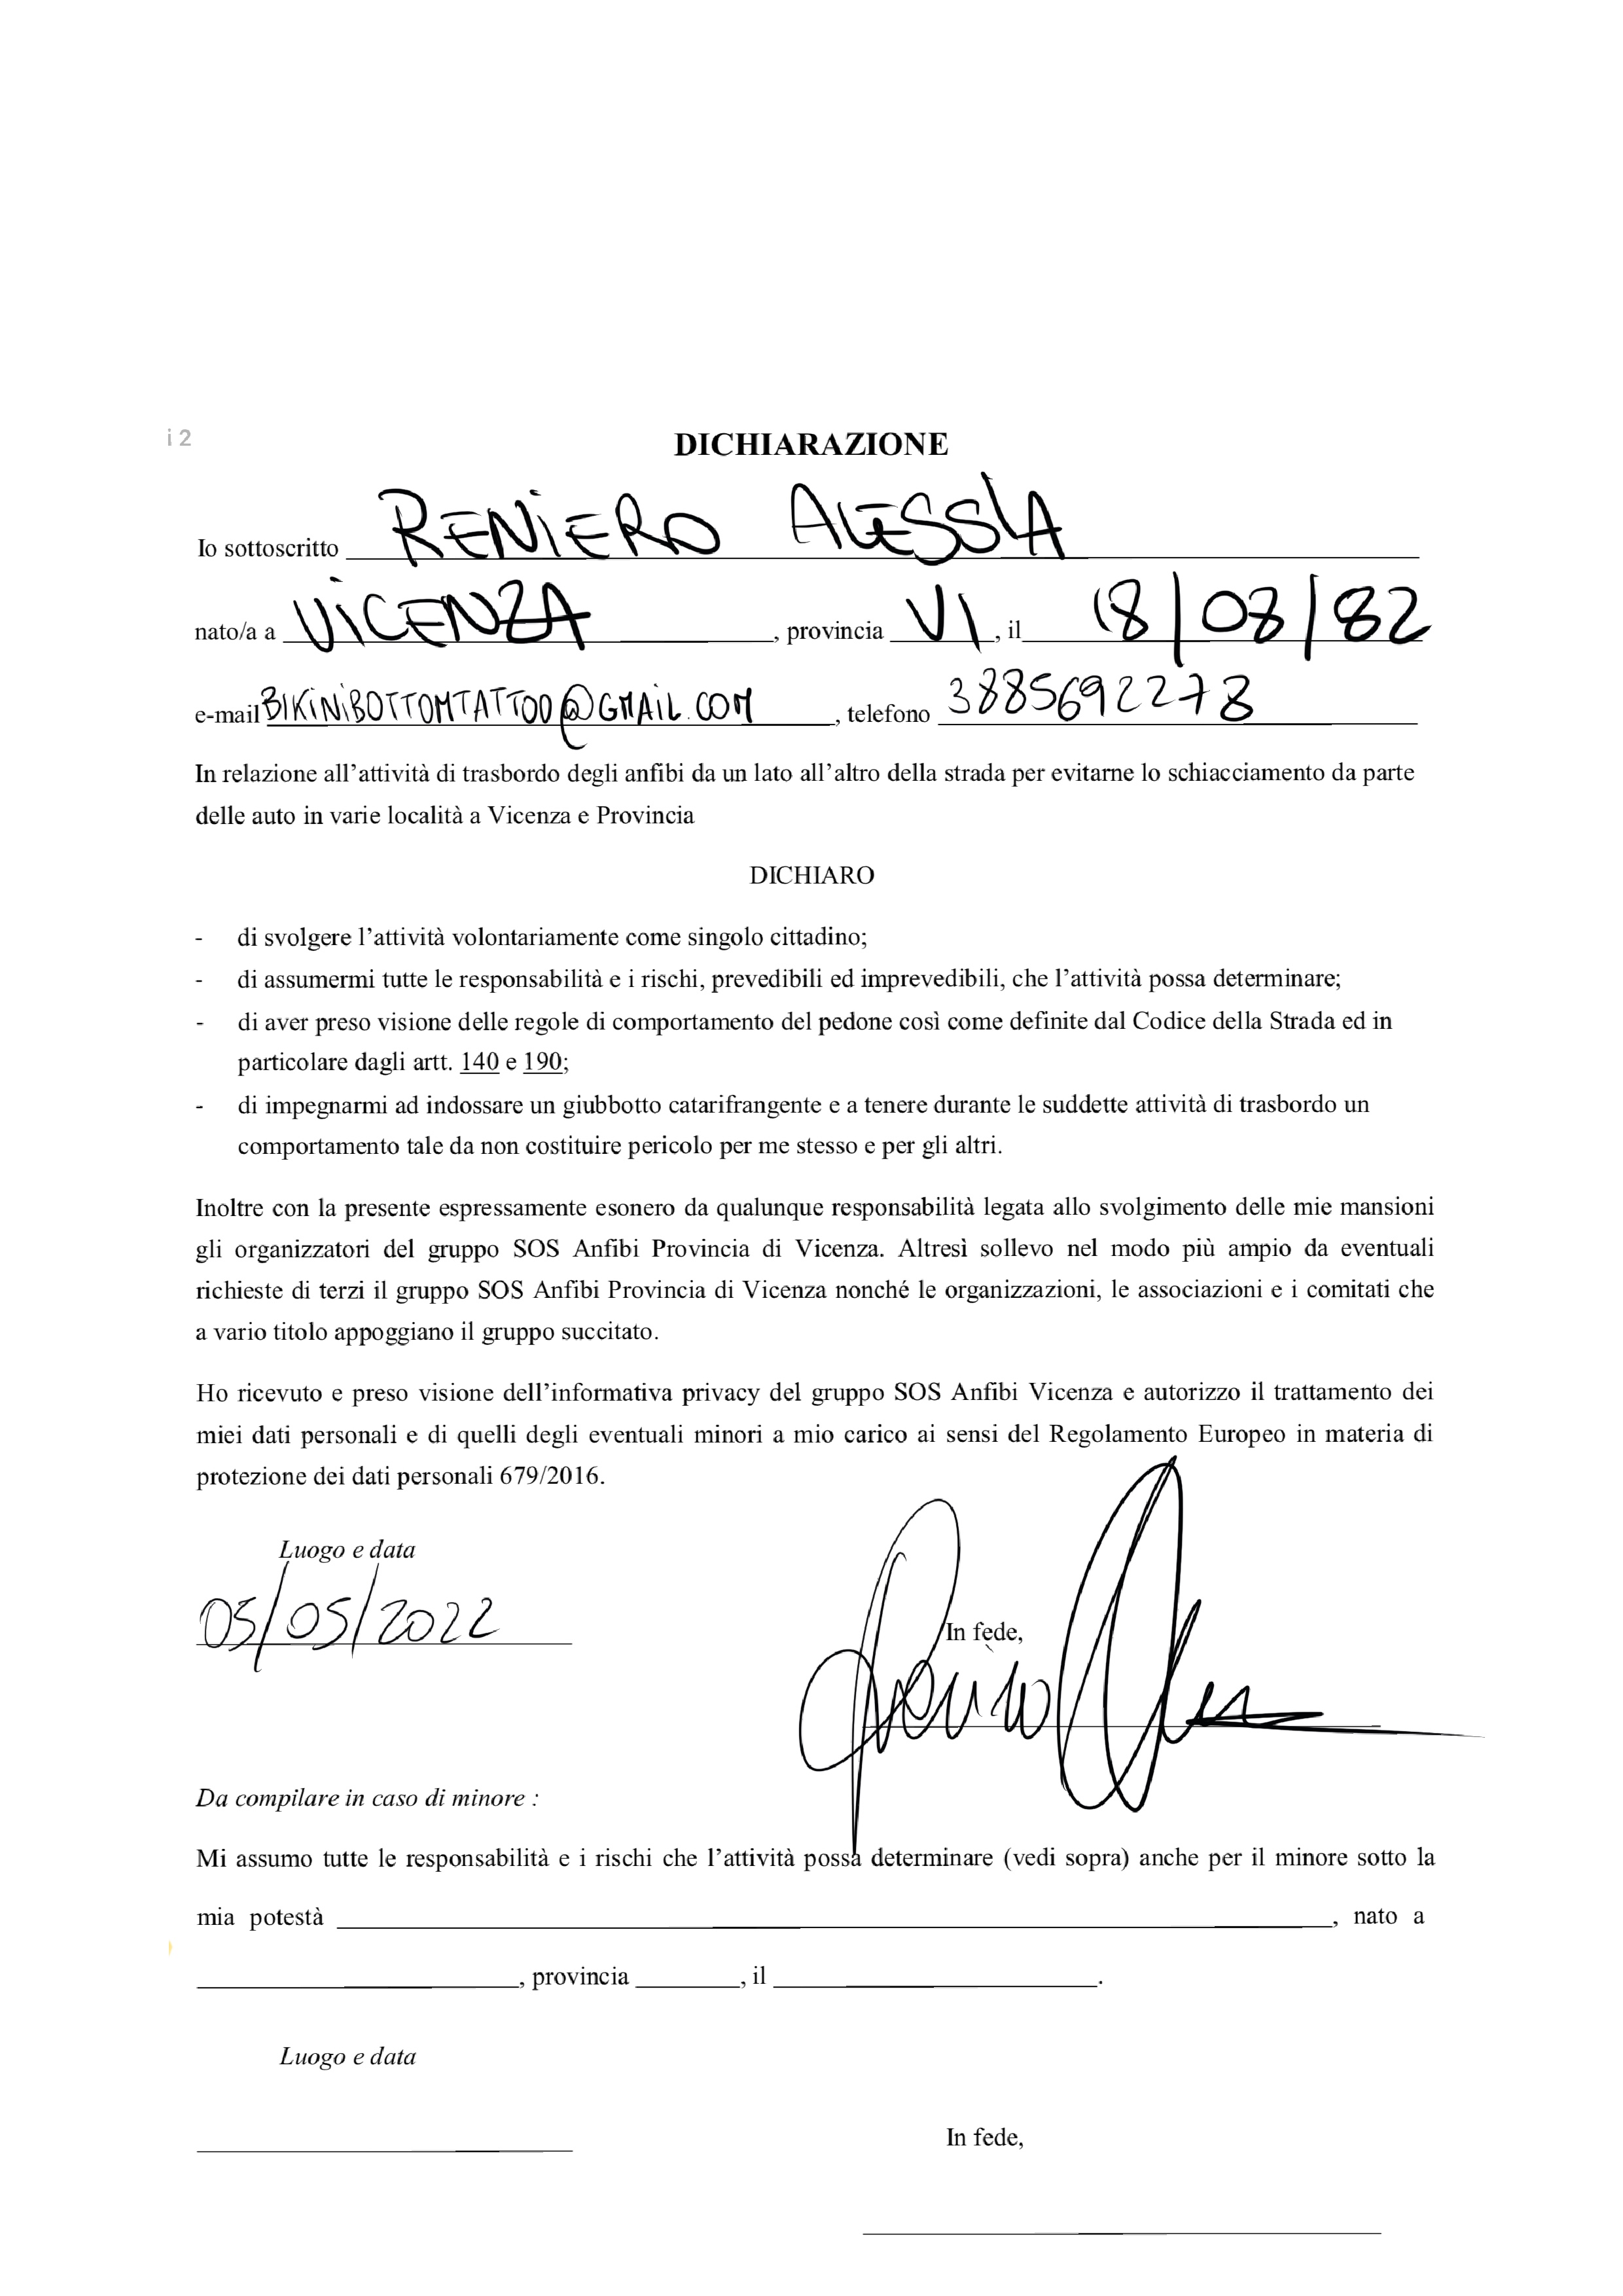 i 2
DICHIARAZIONE
Io sottoscritto RENIERO ALESSIA
nato/a a VICENZA, provincia VI, il 18/08/82
e-mail BIKINIBOTTOMTATTOO@GMAIL.COM, telefono 3885692278
In relazione all’attività di trasbordo degli anfibi da un lato all’altro della strada per evitarne lo schiacciamento da parte
delle auto in varie località a Vicenza e Provincia
DICHIARO
- di svolgere l’attività volontariamente come singolo cittadino;
- di assumermi tutte le responsabilità e i rischi, prevedibili ed imprevedibili, che l’attività possa determinare;
- di aver preso visione delle regole di comportamento del pedone così come definite dal Codice della Strada ed in
particolare dagli artt. 140 e 190;
- di impegnarmi ad indossare un giubbotto catarifrangente e a tenere durante le suddette attività di trasbordo un
comportamento tale da non costituire pericolo per me stesso e per gli altri.
Inoltre con la presente espressamente esonero da qualunque responsabilità legata allo svolgimento delle mie mansioni
gli organizzatori del gruppo SOS Anfibi Provincia di Vicenza. Altresì sollevo nel modo più ampio da eventuali
richieste di terzi il gruppo SOS Anfibi Provincia di Vicenza nonché le organizzazioni, le associazioni e i comitati che
a vario titolo appoggiano il gruppo succitato.
Ho ricevuto e preso visione dell’informativa privacy del gruppo SOS Anfibi Vicenza e autorizzo il trattamento dei
miei dati personali e di quelli degli eventuali minori a mio carico ai sensi del Regolamento Europeo in materia di
protezione dei dati personali 679/2016.
Luogo e data
05/05/2022
In fede,
Da compilare in caso di minore :
Mi assumo tutte le responsabilità e i rischi che l’attività possa determinare (vedi sopra) anche per il minore sotto la
mia potestà , nato a
, provincia , il .
Luogo e data
In fede,